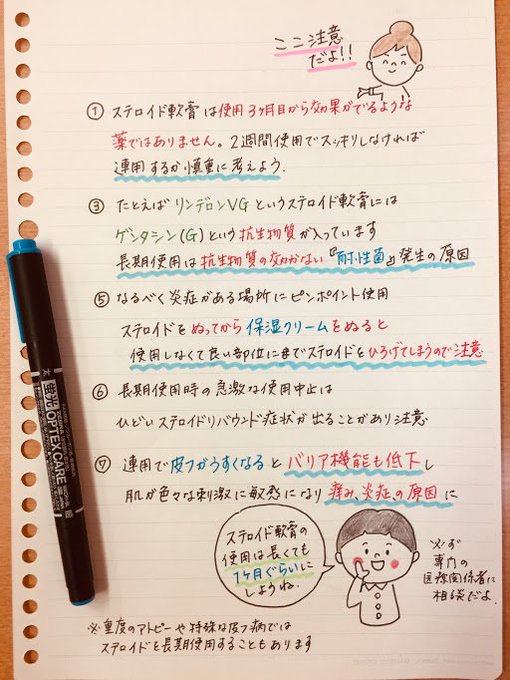 ここ注意
だよ!!
① ステロイド軟膏は使用3ヶ月目から効果がでるような
薬ではありません。2週間使用でスッキリしなければ
連用するか慎重に考えよう.
③ たとえば リンデロンVG というステロイド軟膏には
ゲンタシン(G)という抗生物質が入っています
長期使用は抗生物質の効かない『耐性菌』発生の原因
⑤ なるべく炎症がある場所にピンポイント使用
ステロイドをぬってから保湿クリームをぬると
使用しなくて良い部位にまでステロイドをひろげてしまうので注意
⑥ 長期使用時の急激な使用中止は
ひどいステロイドリバウンド症状が出ることがあり注意
⑦ 連用で皮フがうすくなるとバリア機能も低下し
肌が色々な刺激に敏感になり痒み、炎症、の原因に
ステロイド軟膏の
使用は長くても
1ヶ月ぐらいに
しようね.
※必ず
専門の
医療関係者に
相談だよ.
※重度のアトピーや特殊な皮フ病では
ステロイドを長期使用することもあります
太 蛍光 OPTEX CARE